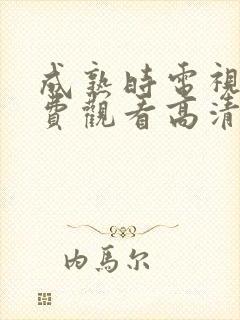 成熟時電視
費觀看高清
内馬尔